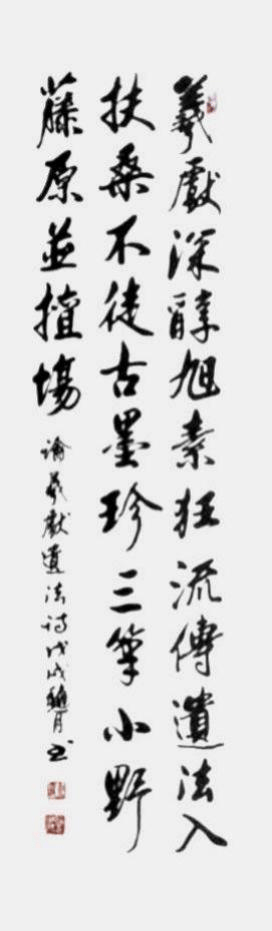 羲獻深醇旭素狂流傳遺法入
扶桑不徒古墨珍三筆小野
藤原並擅場
論羲獻遺法詩戊戌月书